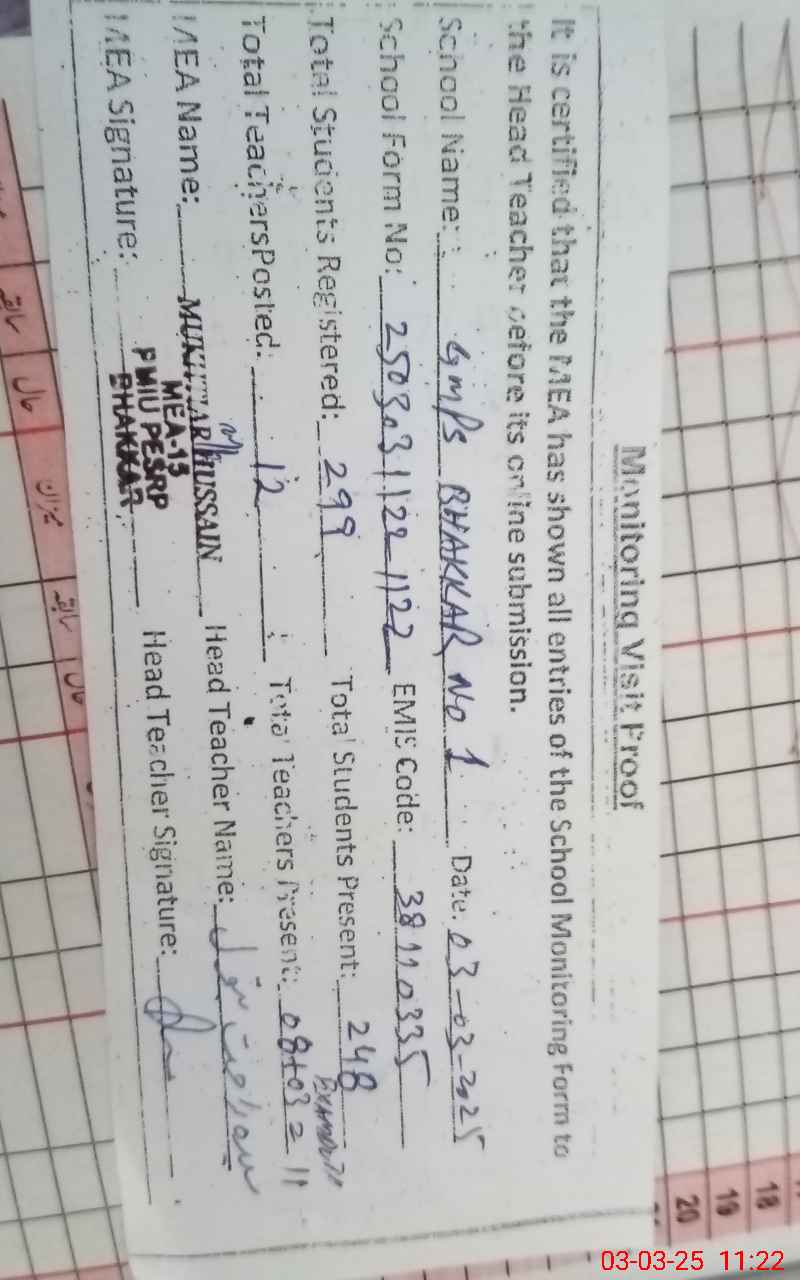 Monitoring Visit Proof
It is certified that the MEA has shown all entries of the School Monitoring Form to
the Head Teacher before its online submission.
School Name: GMPS BHAKKAR No 1 Date: 03-03-2025
School Form No: EMIS Code: 38110335
Total Students Registered: 299 Total Students Present: 248
Total Teachers Posted: 12 Total Teachers Present: 08+03=11
MEA Name: MUKHTIAR HUSSAIN Head Teacher Name:
MEA-15
PMIU PESRP
BHAKKAR
MEA Signature: Head Teacher Signature:
18
19
20
03-03-25 11:22